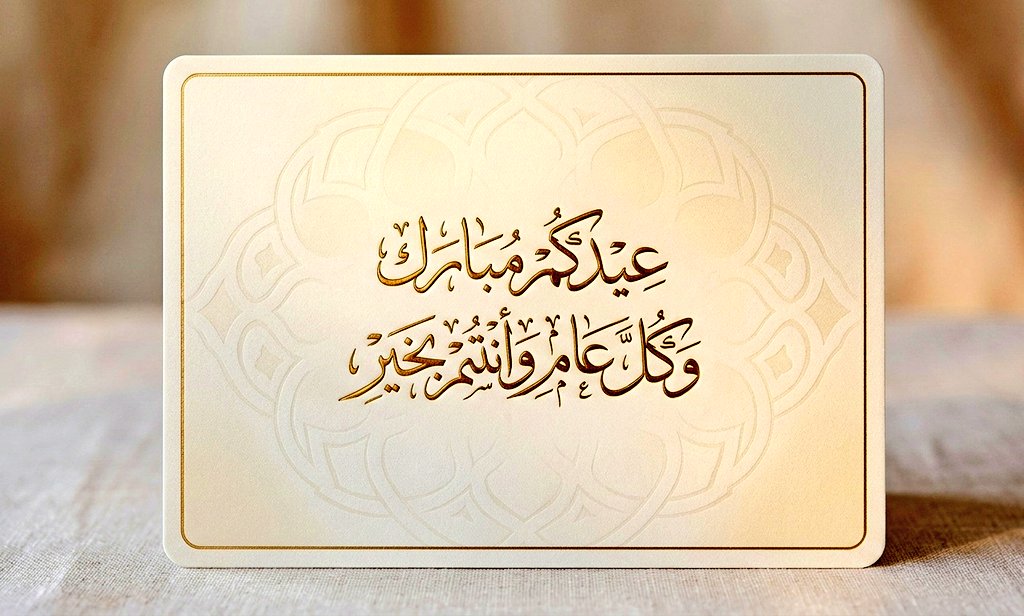 عِيْدكُمْ مُبَارَك
وَكُلَّ عَامِ وَأَنْتُمْ بِخَيَرِ